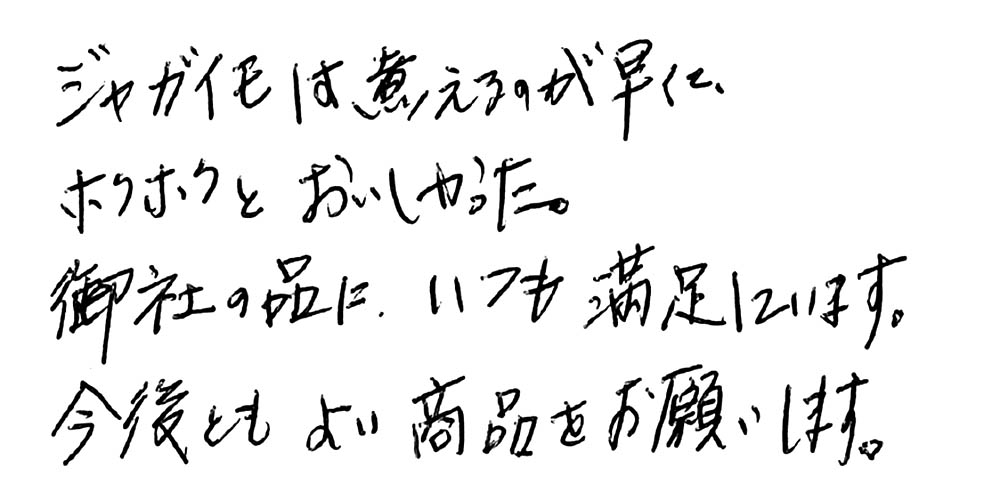 ジャガイモは煮えるのが早くて、
ホクホクとおいしかった。
御社の品に、いつも満足しています。
今後ともよい商品をお願いします。